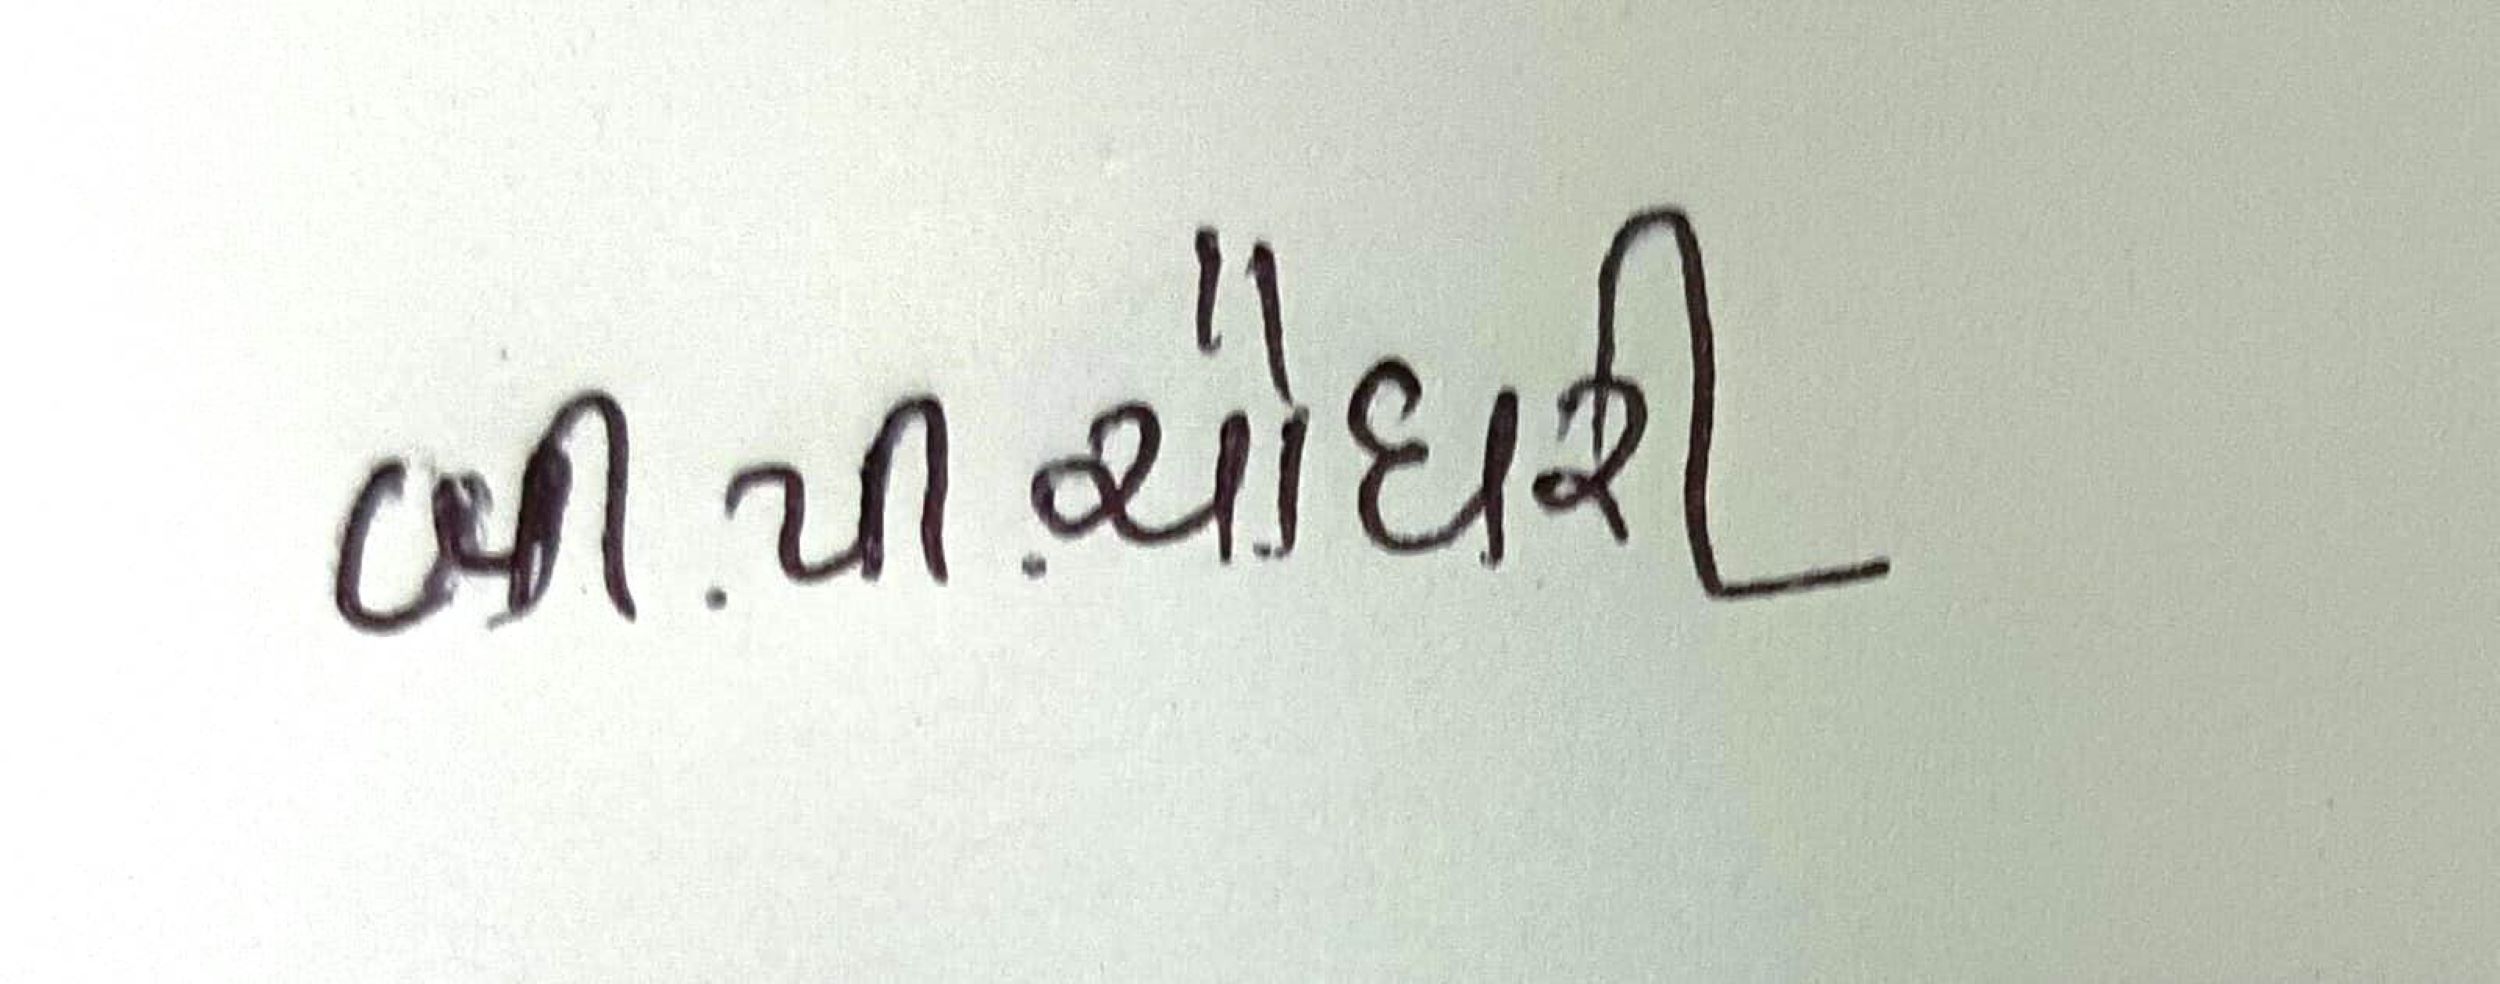 બી.પી.ચૌધરી